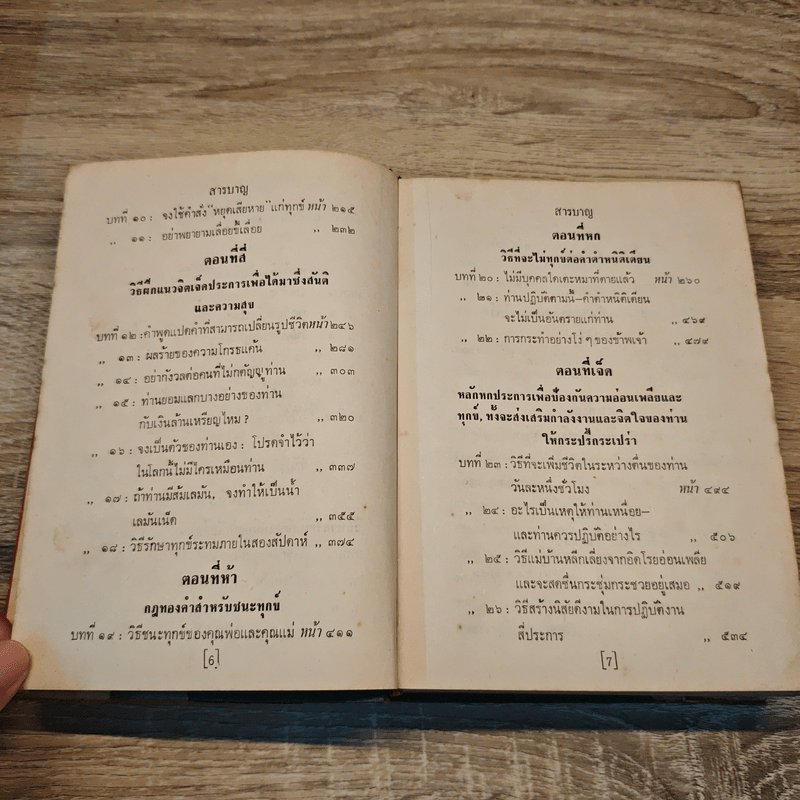 สารบาญ
บทที่ ๑๐ : จงใช้คำสั่ง "หยุดเสียหาย" แก่ทุกข์ หน้า ๒๑๕
,, ๑๑ : อย่าพยายามเลื่อยขี้เลื่อย ,, ๒๓๒
ตอนที่สี่
วิธีฝึกแนวจิตเจ็ดประการเพื่อได้มาซึ่งสันติ
และความสุข
บทที่ ๑๒ : คำพูดแปดคำที่สามารถเปลี่ยนรูปชีวิต หน้า ๒๔๖
,, ๑๓ : ผลร้ายของความโกรธแค้น ,, ๒๘๑
,, ๑๔ : อย่ากังวลต่อคนที่ไม่กตัญญูท่าน ,, ๓๐๓
,, ๑๕ : ท่านยอมแลกบางอย่างของท่าน
กับเงินล้านเหรียญไหม ? ,, ๓๒๐
,, ๑๖ : จงเป็นตัวของท่านเอง : โปรดจำไว้ว่า
ในโลกนี้ไม่มีใครเหมือนท่าน ,, ๓๓๗
,, ๑๗ : ถ้าท่านมีส้มเลมัน, จงทำให้เป็นน้ำ
เลมันเน็ด ,, ๓๕๕
,, ๑๘ : วิธีรักษาทุกข์ระทมภายในสองสัปดาห์ ,, ๓๗๔
ตอนที่ห้า
กฎทองคำสำหรับชนะทุกข์
บทที่ ๑๙ : วิธีชนะทุกข์ของคุณพ่อและคุณแม่ หน้า ๔๑๑
[6]
สารบาญ
ตอนที่หก
วิธีที่จะไม่ทุกข์ต่อคำตำหนิติเตียน
บทที่ ๒๐ : ไม่มีบุคคลใดเตะหมาที่ตายแล้ว หน้า ๒๖๐
,, ๒๑ : ท่านปฏิบัติตามนี้–คำตำหนิติเตียน
จะไม่เป็นอันตรายแก่ท่าน ,, ๔๖๙
,, ๒๒ : การกระทำอย่างโง่ ๆ ของข้าพเจ้า ,, ๔๗๙
ตอนที่เจ็ด
หลักหกประการเพื่อป้องกันความอ่อนเพลียและ
ทุกข์, ทั้งจะส่งเสริมกำลังงานและจิตใจของท่าน
ให้กระปรี้กระเปร่า
บทที่ ๒๓ : วิธีที่จะเพิ่มชีวิตในระหว่างตื่นของท่าน
วันละหนึ่งชั่วโมง หน้า ๔๙๔
,, ๒๔ : อะไรเป็นเหตุให้ท่านเหนื่อย–
และท่านควรปฏิบัติอย่างไร ,, ๕๐๖
,, ๒๕ : วิธีแม่บ้านหลีกเลี่ยงจากอิดโรยอ่อนเพลีย
และจะสดชื่นกระชุ่มกระชวยอยู่เสมอ ,, ๕๑๙
,, ๒๖ : วิธีสร้างนิสัยดีงามในการปฏิบัติงาน
สี่ประการ ,, ๕๓๔
[7]